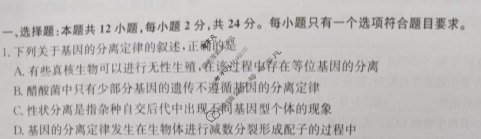 一、选择题:本题共 12 小题,每小题 2 分,共 24 分。每小题只有一个选项符合题目要求。
1. 下列关于基因的分离定律的叙述,正确的是
A. 有些真核生物可以进行无性生殖,在该过程中存在等位基因的分离
B. 醋酸菌中只有少部分基因的遗传不遵循基因的分离定律
C. 性状分离是指杂种自交后代中出现不同基因型个体的现象
D. 基因的分离定律发生在生物体进行减数分裂形成配子的过程中